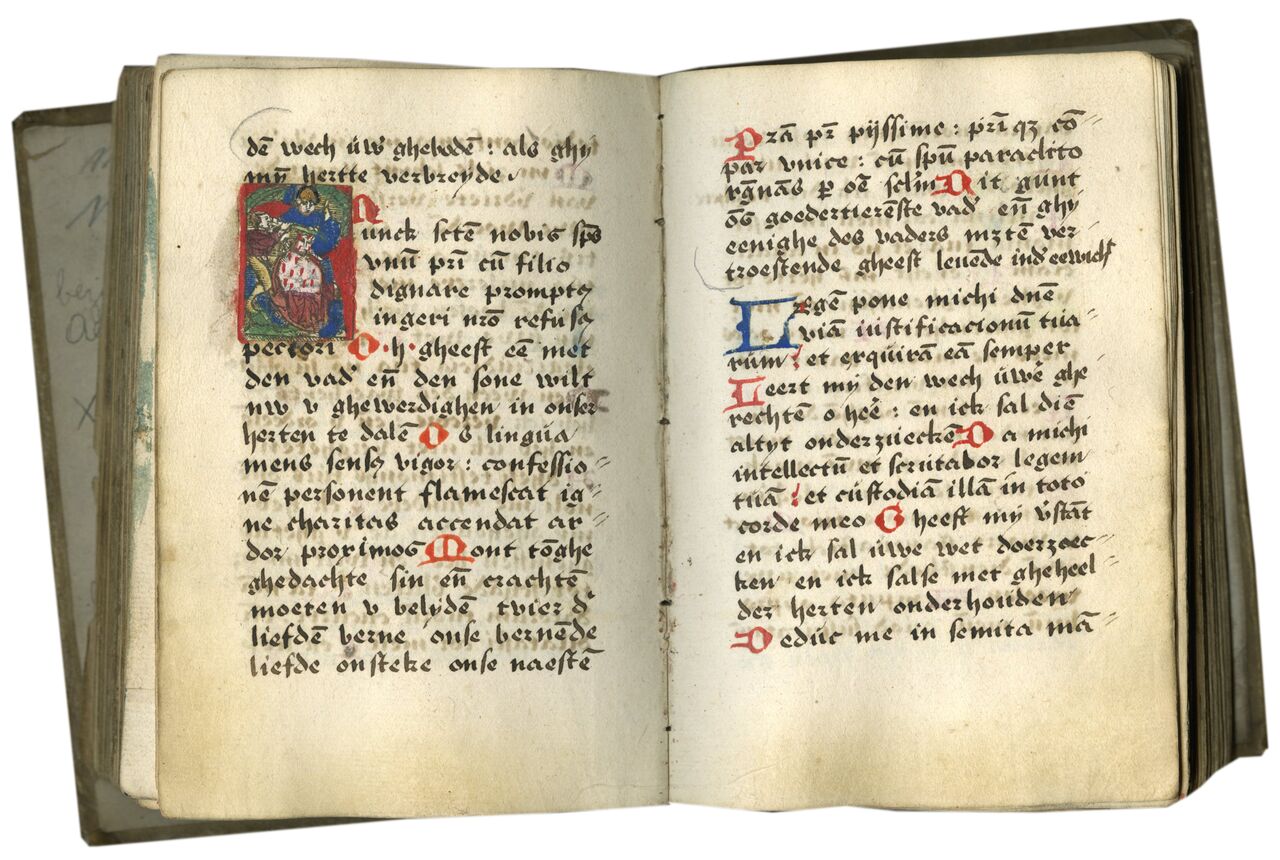 dē wech ūw ghebodē : als ghy
myn hertte verbreyde .
Nunck sctē nobis sps
vnū pri cū filio
dignare promptꝯ
ingeri nrō refusꝯ
pectori O · h · gheest eē met
den vad' eñ den sone wilt
nw v ghewerdighen in onser
herten te dalē Os lingua
mens sensꝯ vigor : confessio=
nē personent flamescat ig=
ne charitas accendat ar=
dor proximos Mont tōghe
ghedachte sin eñ crachtē
moeten v belydē tvier d'
liefdē berne onse bernēde
liefde onsteke onse naestē
Prā pr pijssime : pri qz cō=
par vnice : cū spū paraclito
rgnās p oē sclm Dit gunt
ōs goedertierēste vad' eñ ghy
eenighe des vaders mztē ver=
troestende gheest leuēde ind' eewich
Legē pone michi dnē
viām iustificacionū tua=
rūm : et exquirā eā semper
Leert my den wech ūwe' ghe
rechtē o heē : en ick sal diē
altyt onderzueckē Da michi
intellectū et scrutabor legem
tuā : et custodiā illā in toto
corde meo Gheeft my vstāt
en ick sal uwe wet doerzoec=
ken en ick salse met gheheel=
der herten onderhouden
Deduc me in semita mā=